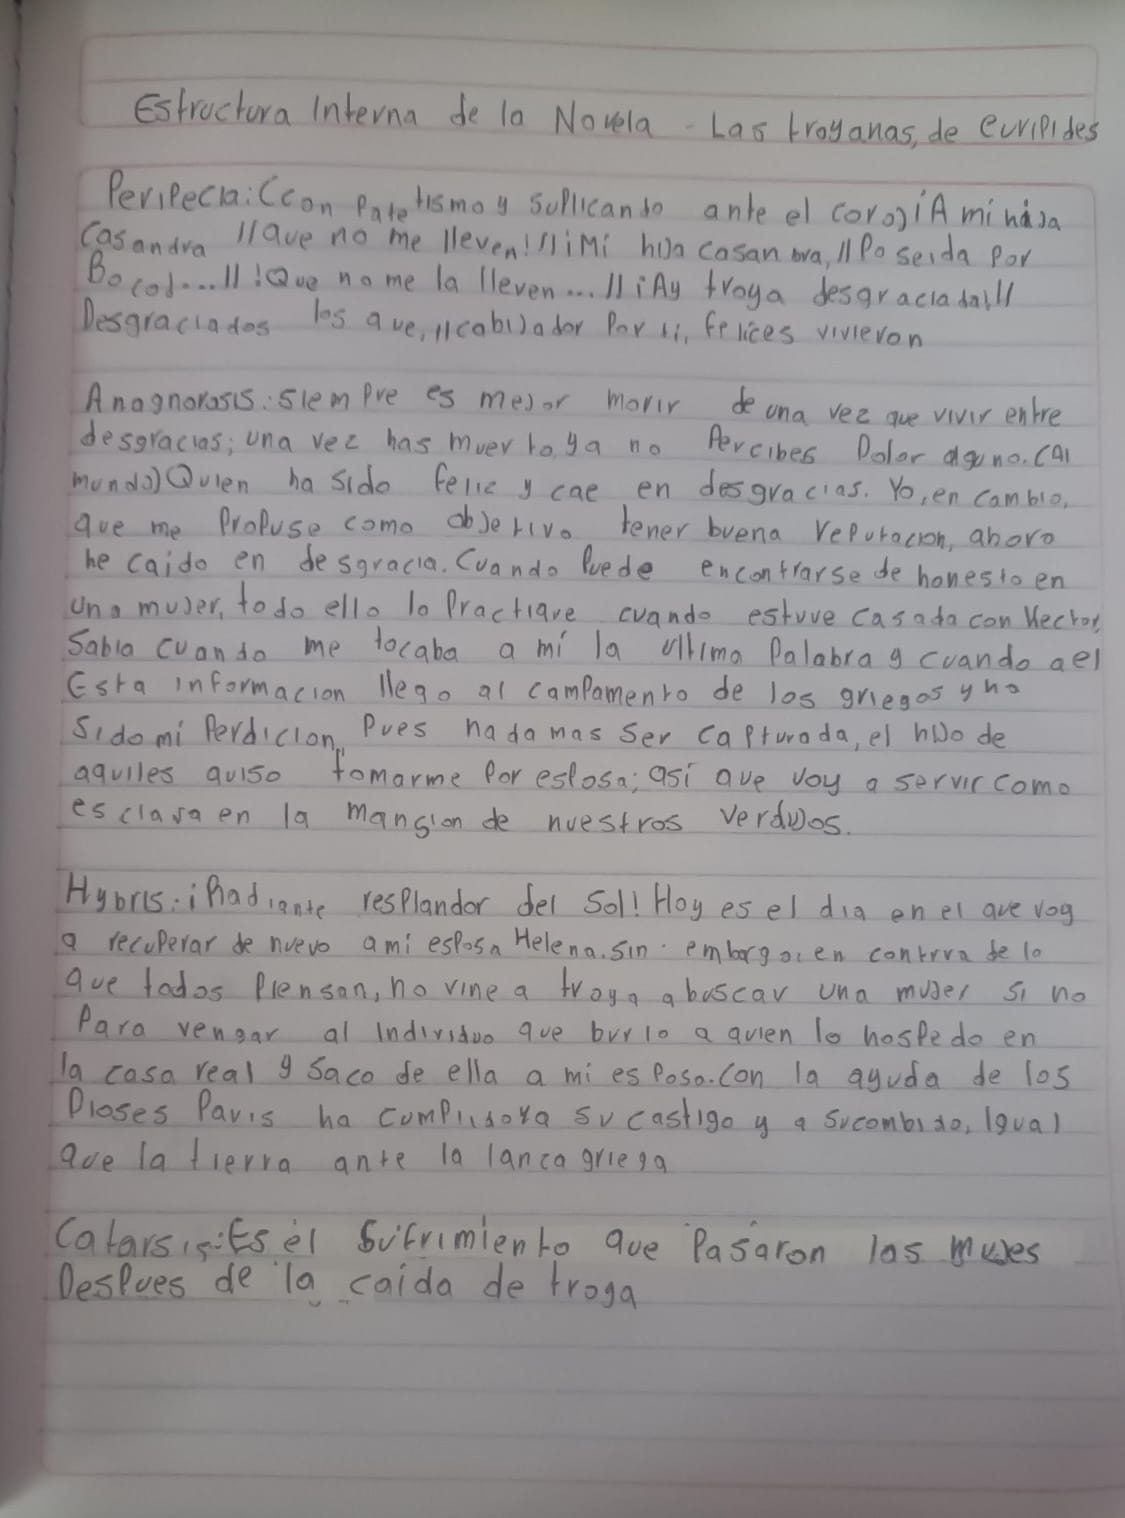 Estructura Interna de la Novela - Las troyanas, de euripides
Peripecia: (con Patetismo y suplicando ante el coro) ¡A mi hija
Casandra // que no me lleven! // ¡Mi hija casandra, // Poseida por
// ¡Que no me la lleven... // ¡Ay troya desgraciada! //
Desgraciados los que, // cabijador Por ti, felices vivieron
Anagnorosis: siempre es mejor morir de una vez que vivir entre
desgracias; una vez has muerto, ya no Percibes Dolor alguno. (Al
mundo) Quien ha sido feliz y cae en desgracias. Yo, en cambio,
que me Propuse como objetivo tener buena reputacion, ahora
he caido en desgracia. Cuando Puede encontrarse de honesto en
una mujer, todo ello lo Practique cuando estuve casada con Hector,
Sabia cuando me tocaba a mí la ultima Palabra y cuando a el
Esta informacion llego al campamento de los griegos y ha
Sido mi Perdicion, Pues nada mas ser capturada, el hijo de
aquiles quiso tomarme Por esposa; así que voy a servir como
esclava en la mansion de nuestros verdujos.
Hybris: ¡Radiante resplandor del sol! Hoy es el dia en el que voy
a recuperar de nuevo a mi esposa Helena. Sin embargo, en contrra de lo
que todos Piensan, no vine a troya a buscar una mujer si no
Para vengar al individuo que burlo a quien lo hospedo en
la casa real y saco de ella a mi esposa. Con la ayuda de los
Dioses Paris ha cumplido ya su castigo y a sucombido, Igual
que la tierra ante la lanca griega
Catarsis: Es el sufrimiento que Pasaron las mujes
Despues de la caida de troya